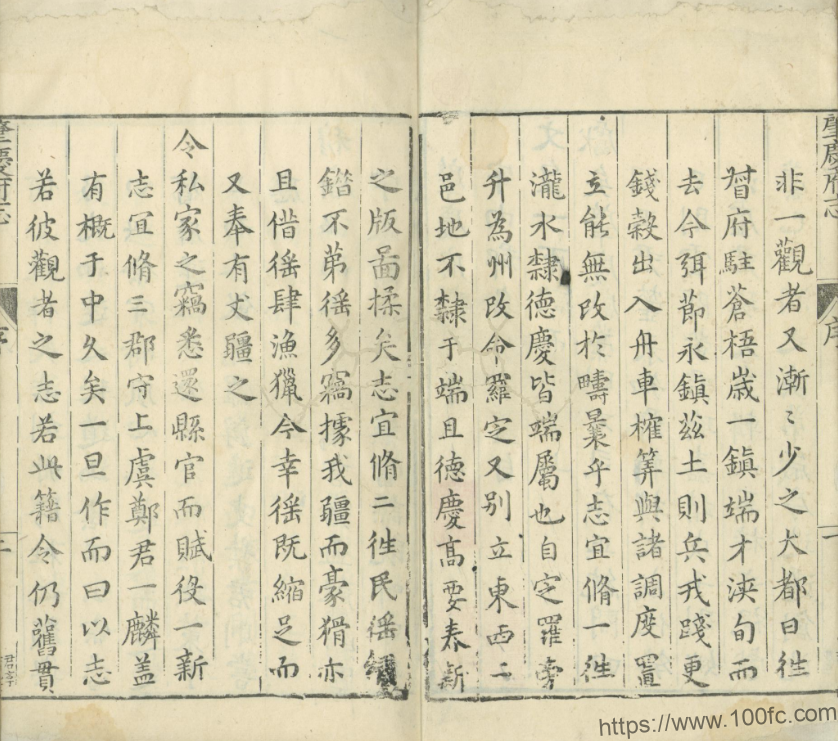 肇慶府志
序
一
非一觀者又漸〻少之大都曰徃
督府駐蒼梧歲一鎮端才浹旬而
去今弭節永鎮茲土則兵戎踐更
錢穀出入舟車榷筭與諸調度置
立能無改於疇曩乎志宜脩一徃
瀧水隸德慶皆端屬也自定羅旁
升為州改命羅定又別立東西二
邑地不隸于端且德慶高要春新
之版圖揉矣志宜脩二徃民徭繡
錯不苐徭多竊據我疆而豪猾亦
且借徭肆漁獵今幸徭既縮足而
又奉有丈疆之
令私家之竊悉還縣官而賦役一新
志宜脩三郡守上虞鄭君一麟蓋
有概于中久矣一旦作而曰以志
若彼觀者之志若此籍令仍舊貫
肇慶府志
序
二
https://www.100fc.com